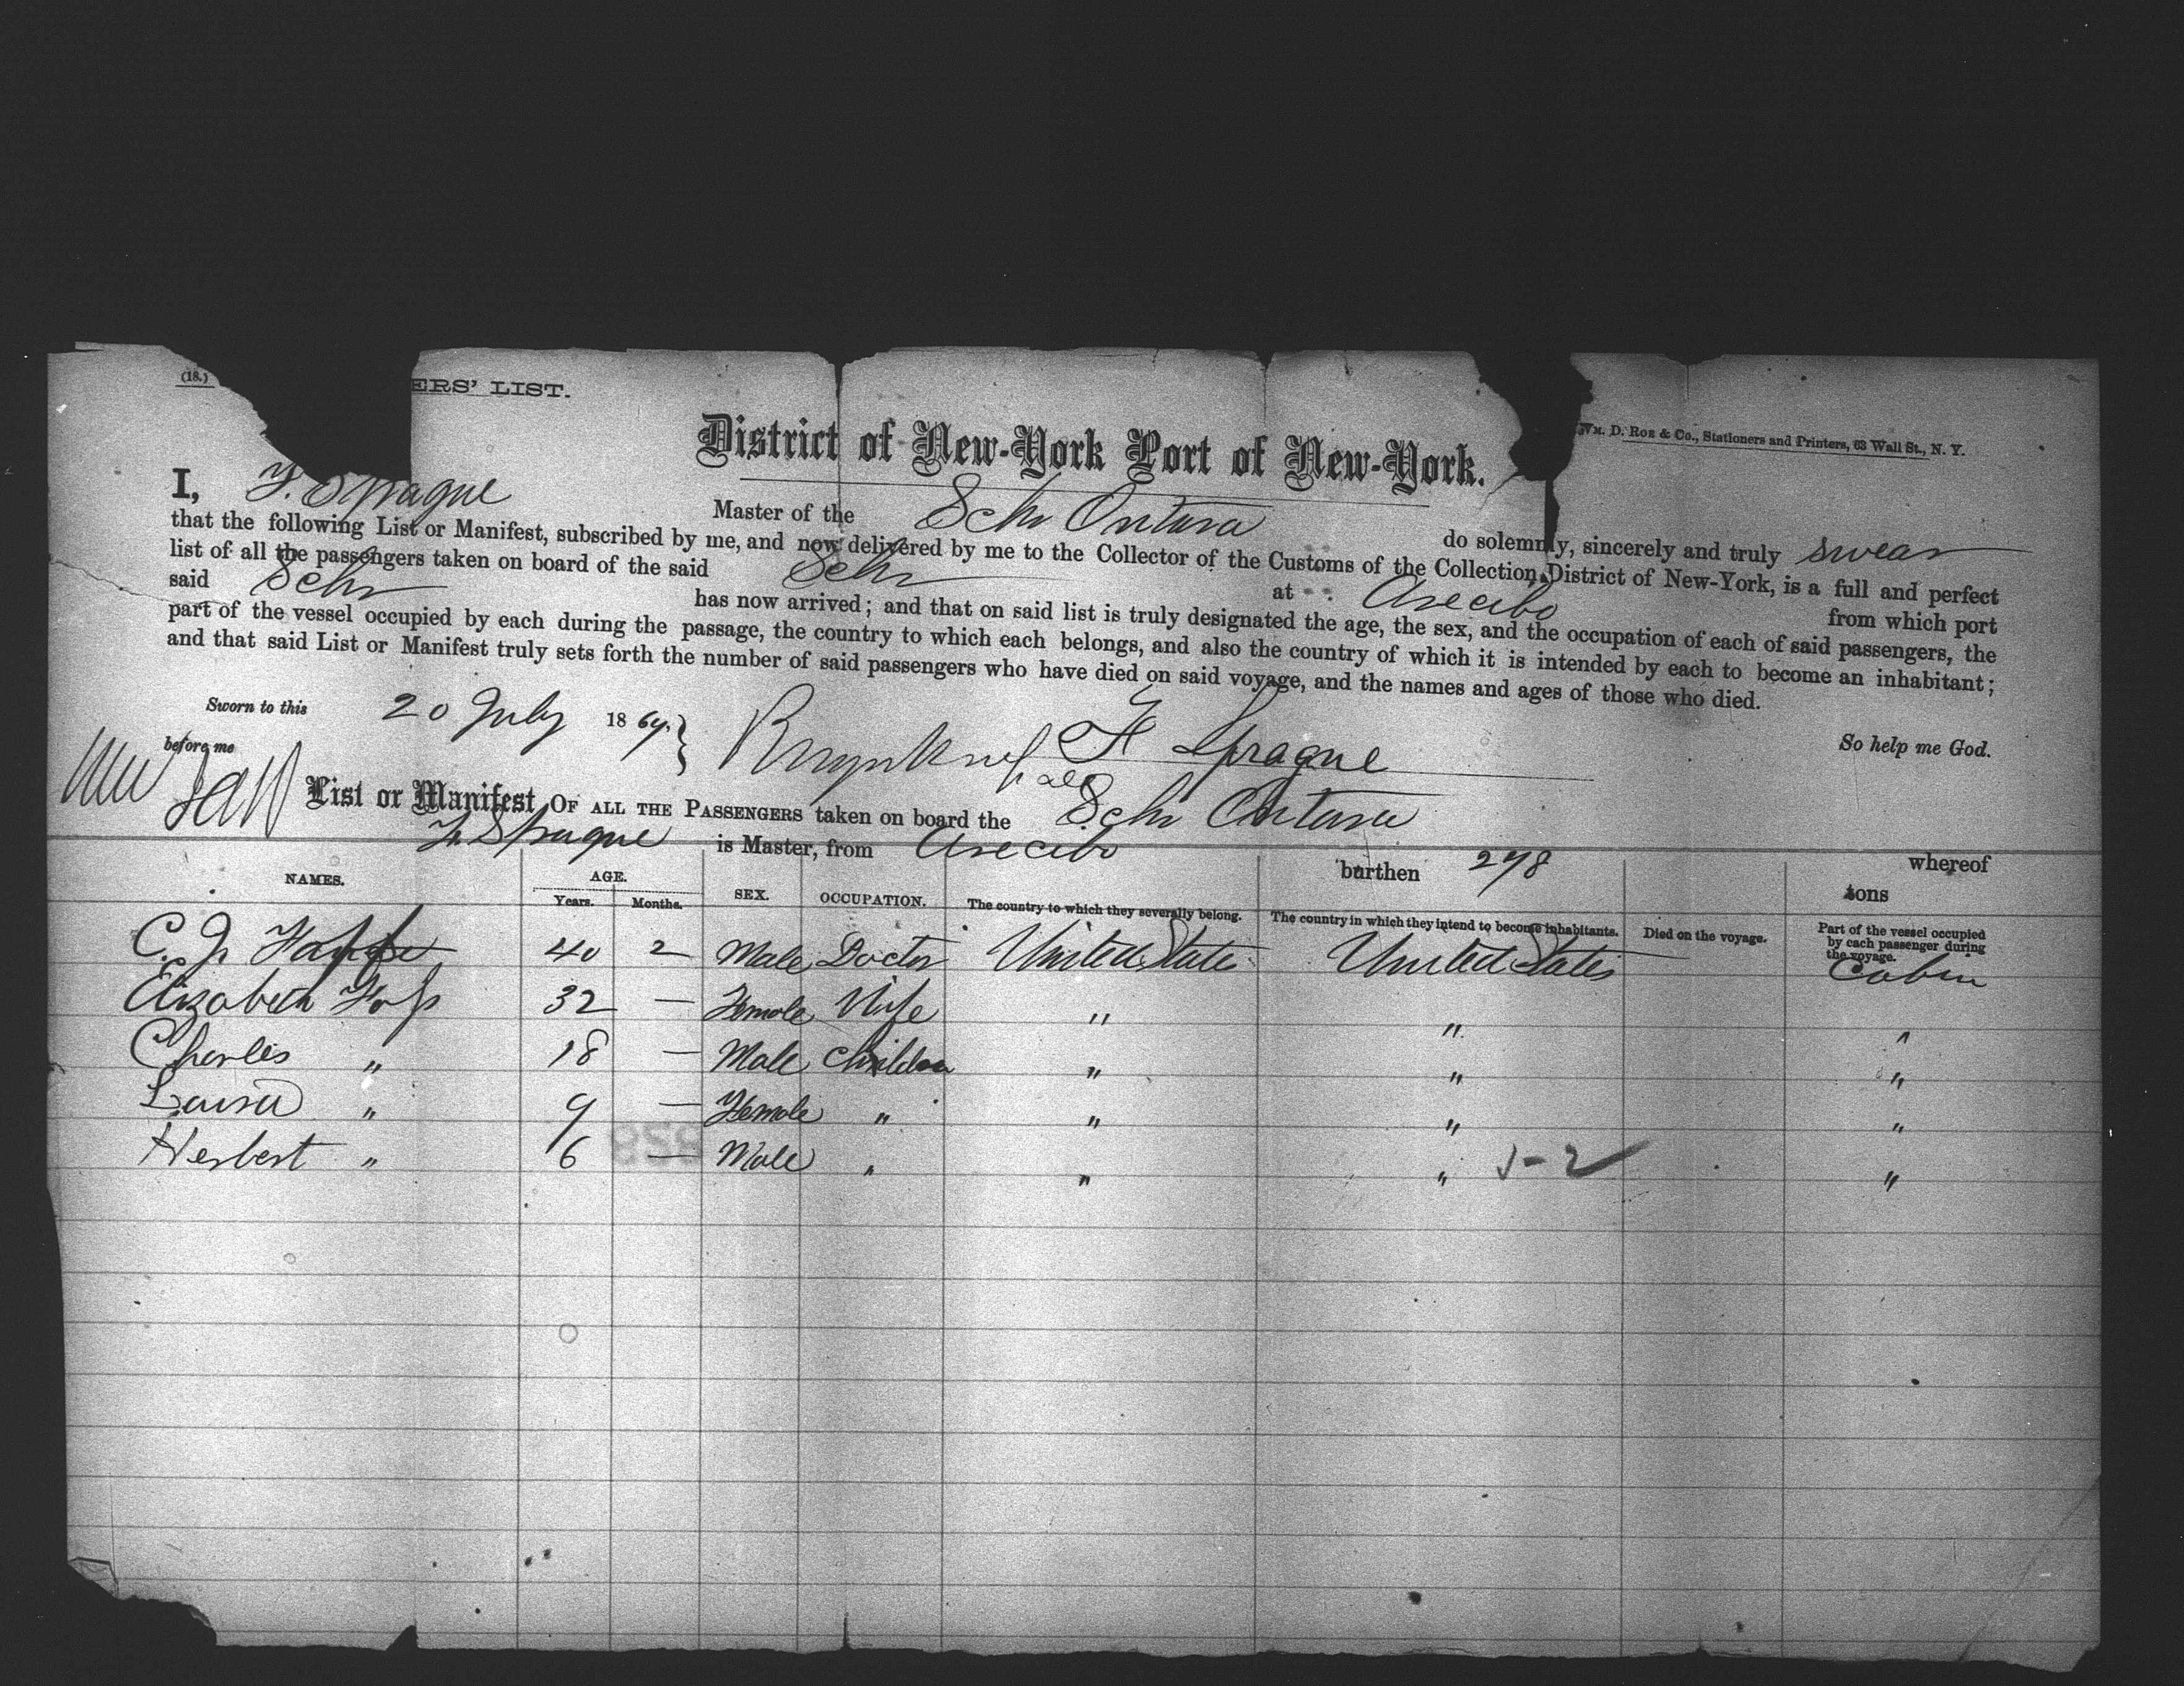 (18.)
ERS' LIST.
District of New-York Port of New-York.
Wm. D. Roe & Co., Stationers and Printers, 63 Wall St., N. Y.
I, F. Sprague Master of the Schr Ontara do solemnly, sincerely and truly swear
that the following List or Manifest, subscribed by me, and now delivered by me to the Collector of the Customs of the Collection District of New-York, is a full and perfect
list of all the passengers taken on board of the said Schr at Arecibo from which port
said Schr has now arrived; and that on said list is truly designated the age, the sex, and the occupation of each of said passengers, the
part of the vessel occupied by each during the passage, the country to which each belongs, and also the country of which it is intended by each to become an inhabitant;
and that said List or Manifest truly sets forth the number of said passengers who have died on said voyage, and the names and ages of those who died.
So help me God.
Sworn to this 20 July 18
before me
F Sprague
List or Manifest OF ALL THE PASSENGERS taken on board the Schr Ontara whereof
F. Sprague is Master, from Arecibo burthen 278 tons
NAMES. AGE. Years. Months. SEX. OCCUPATION. The country to which they severally belong. The country in which they intend to become inhabitants. Died on the voyage. Part of the vessel occupied by each passenger during the voyage.
C. J. 40 2 Male Doctor United States United States Cabin
Elizabeth 32 — Female Wife " " "
Charles " 18 — Male Children " " "
Laura " 9 — Female " " " "
Herbert " 6 — Male " " " "